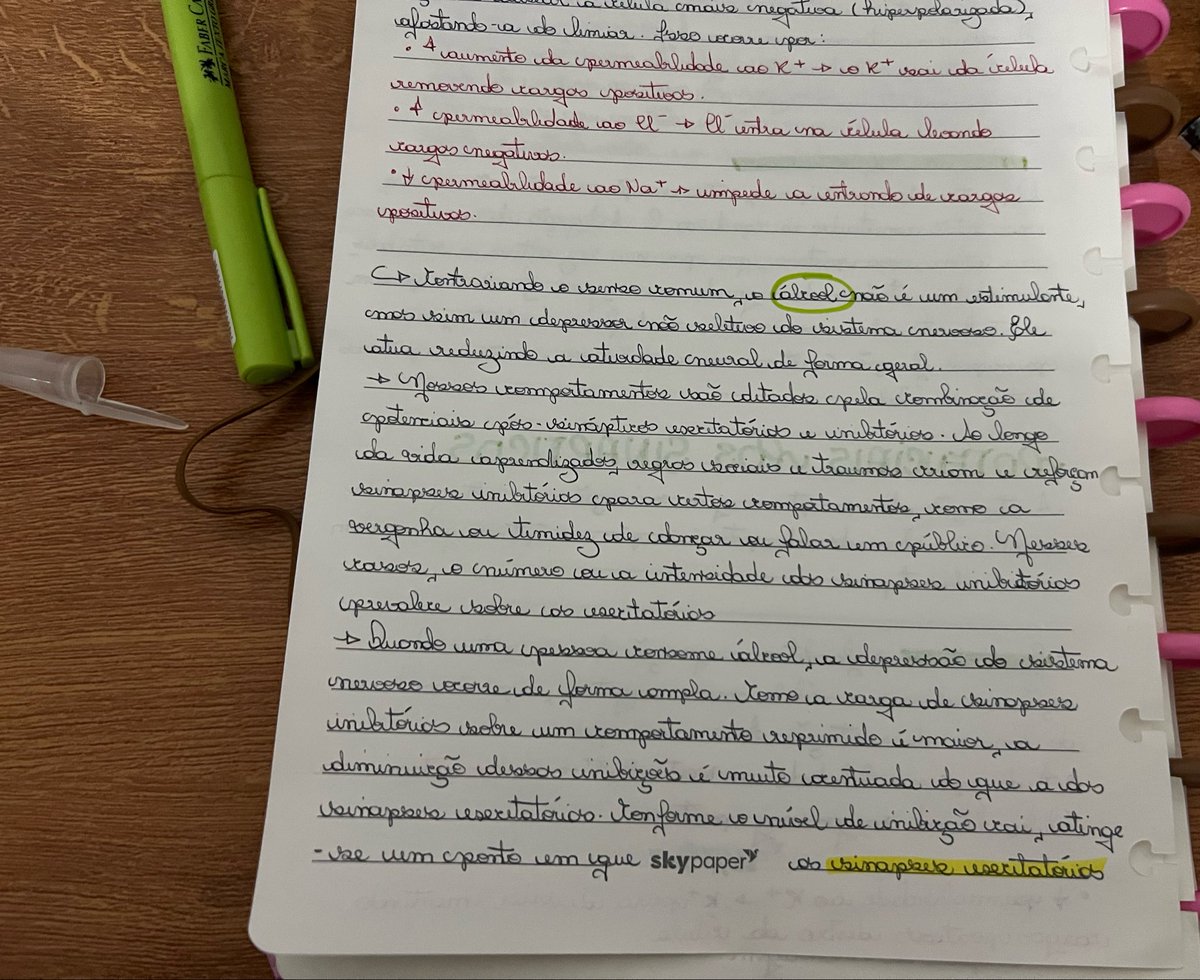 FABER C
a célula mais negativa (hiperpolarizada),
afastando-a do limiar. Isso ocorre por:
• ↑ aumento da permeabilidade ao K⁺ → o K⁺ sai da célula
removendo cargas positivas.
• ↑ permeabilidade ao Cl⁻ → Cl⁻ entra na célula levando
cargas negativas.
• ↓ permeabilidade ao Na⁺ → impede a entrando de cargas
positivas.
↳ Contrariando o senso comum, o álcool não é um estimulante,
mas sim um depressor não seletivo do sistema nervoso. Ele
atua reduzindo a atividade neural de forma geral.
→ Nossos comportamentos são ditados pela combinação de
potenciais pós-sinápticos excitatórios e inibitórios. Ao longo
da vida aprendizados, regras sociais e traumas criam e reforçam
sinapses inibitórias para certos comportamentos, como a
vergonha ou timidez de dançar ou falar em público. Nesses
casos, o número ou a intensidade das sinapses inibitórias
prevalece sobre as excitatórias
→ Quando uma pessoa consome álcool, a depressão do sistema
nervoso ocorre de forma ampla. Como a carga de sinapses
inibitórias sobre um comportamento reprimido é maior, a
diminuição dessas inibições é muito acentuada do que a das
sinapses excitatórias. Conforme o nível de inibição cai, atinge
-se um ponto em que skypaper as sinapses excitatórias